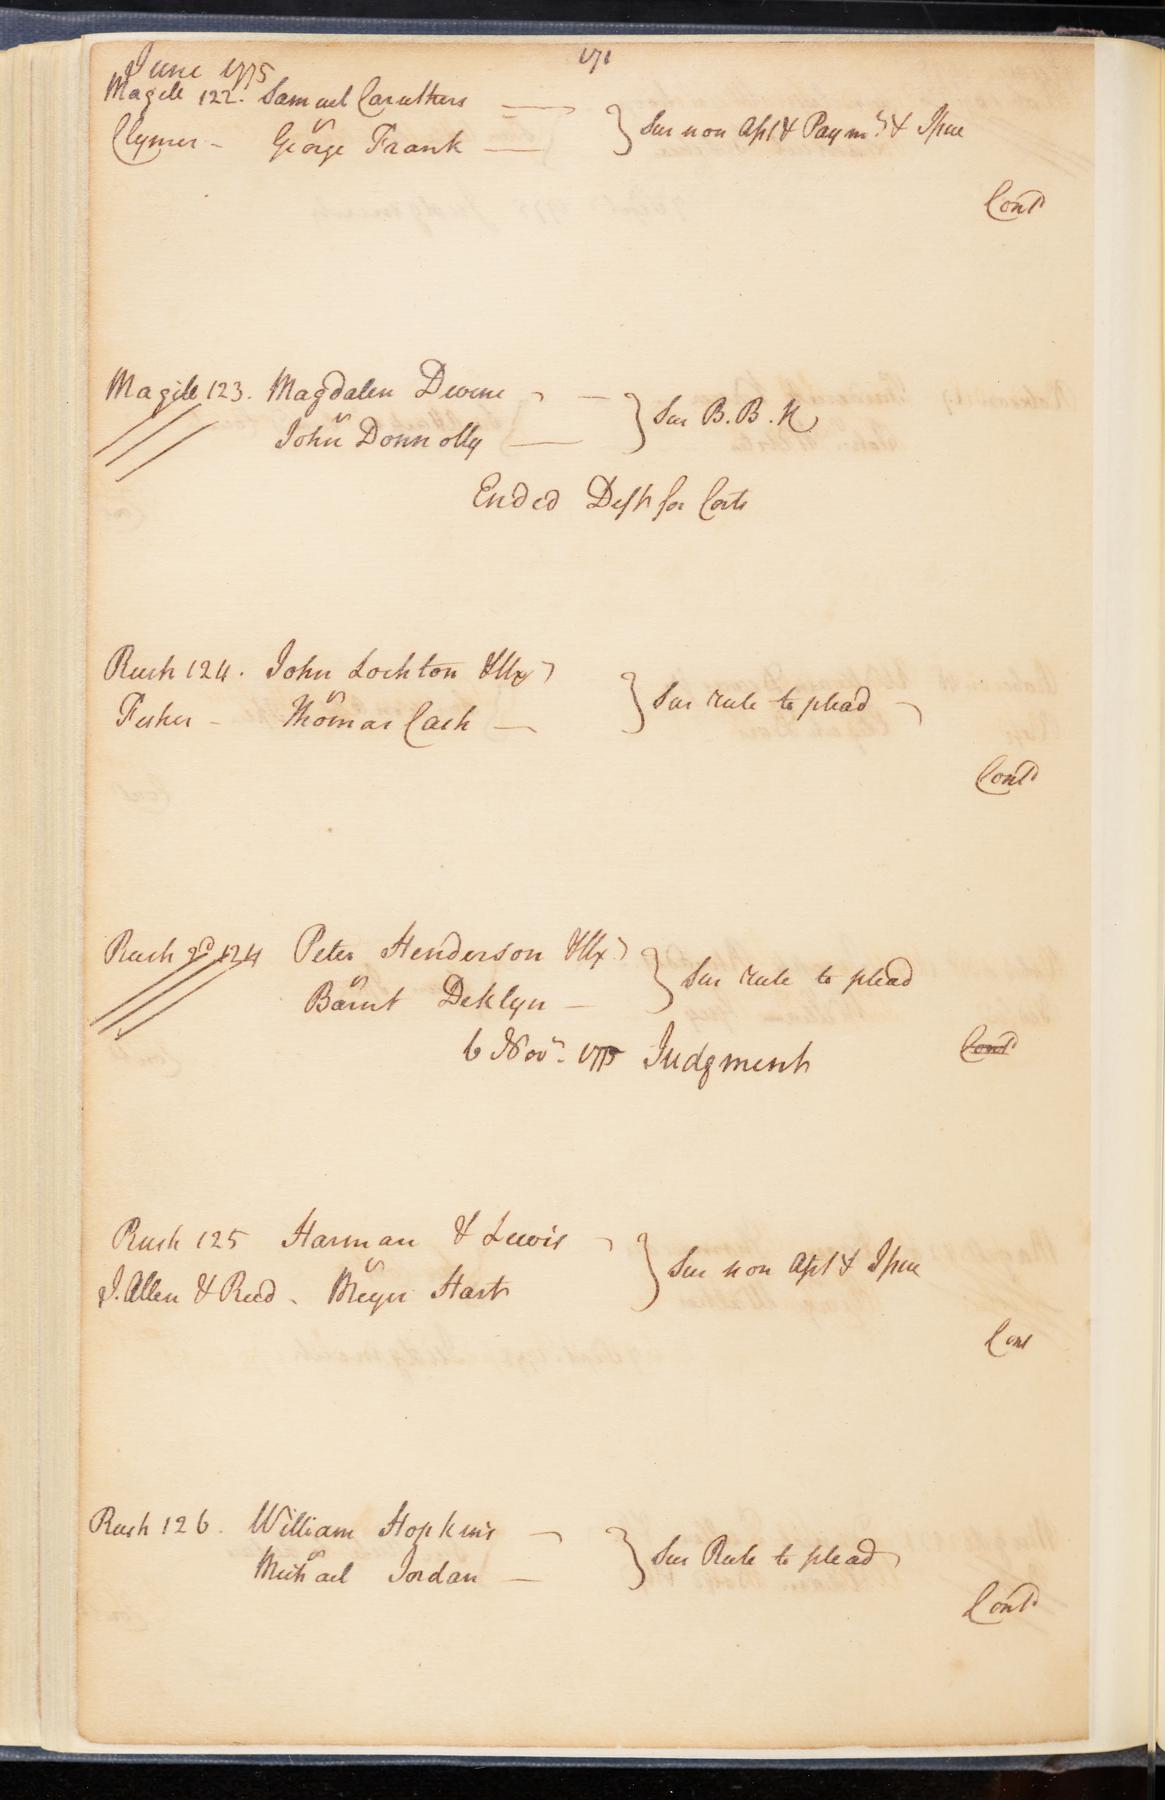 June 1775
171
Magill 122. Samuel Caruthers
vs
Clymer - George Frank
Sur non Ass't & Paym.t & Issue
Cont'd
Magill 123. Magdalen Devine
vs
John Donnolly
Sur B. B. R
Ended Deft for Costs
Rush 124. John Lockton & Ux
vs
Fisher - Thomas Cash
Sur rule to plead
Cont'd
Rush 2d 124 Peter Henderson & Ux
vs
Barnt Deklyn -
Sur rule to plead
6 Novr. 1775 Judgment
Cont'd
Rush 125 Harman & Lewis
vs
J. Allen & Reed - Meyer Hart
Sur non Ass't & Issue
Cont
Rush 126. William Hopkins
vs
Michael Jordan
Sur Rule to plead
Cont'd